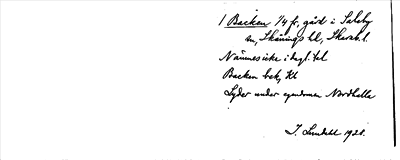 1 Backen 1/4 fr, gård i Saleby
sn, Skånings hd, Skarab. l.
Nämnes icke i dagl. tal
Backen bek, Kl
Lyder under egendomen Nordhalla
J. Lundahl 1921.